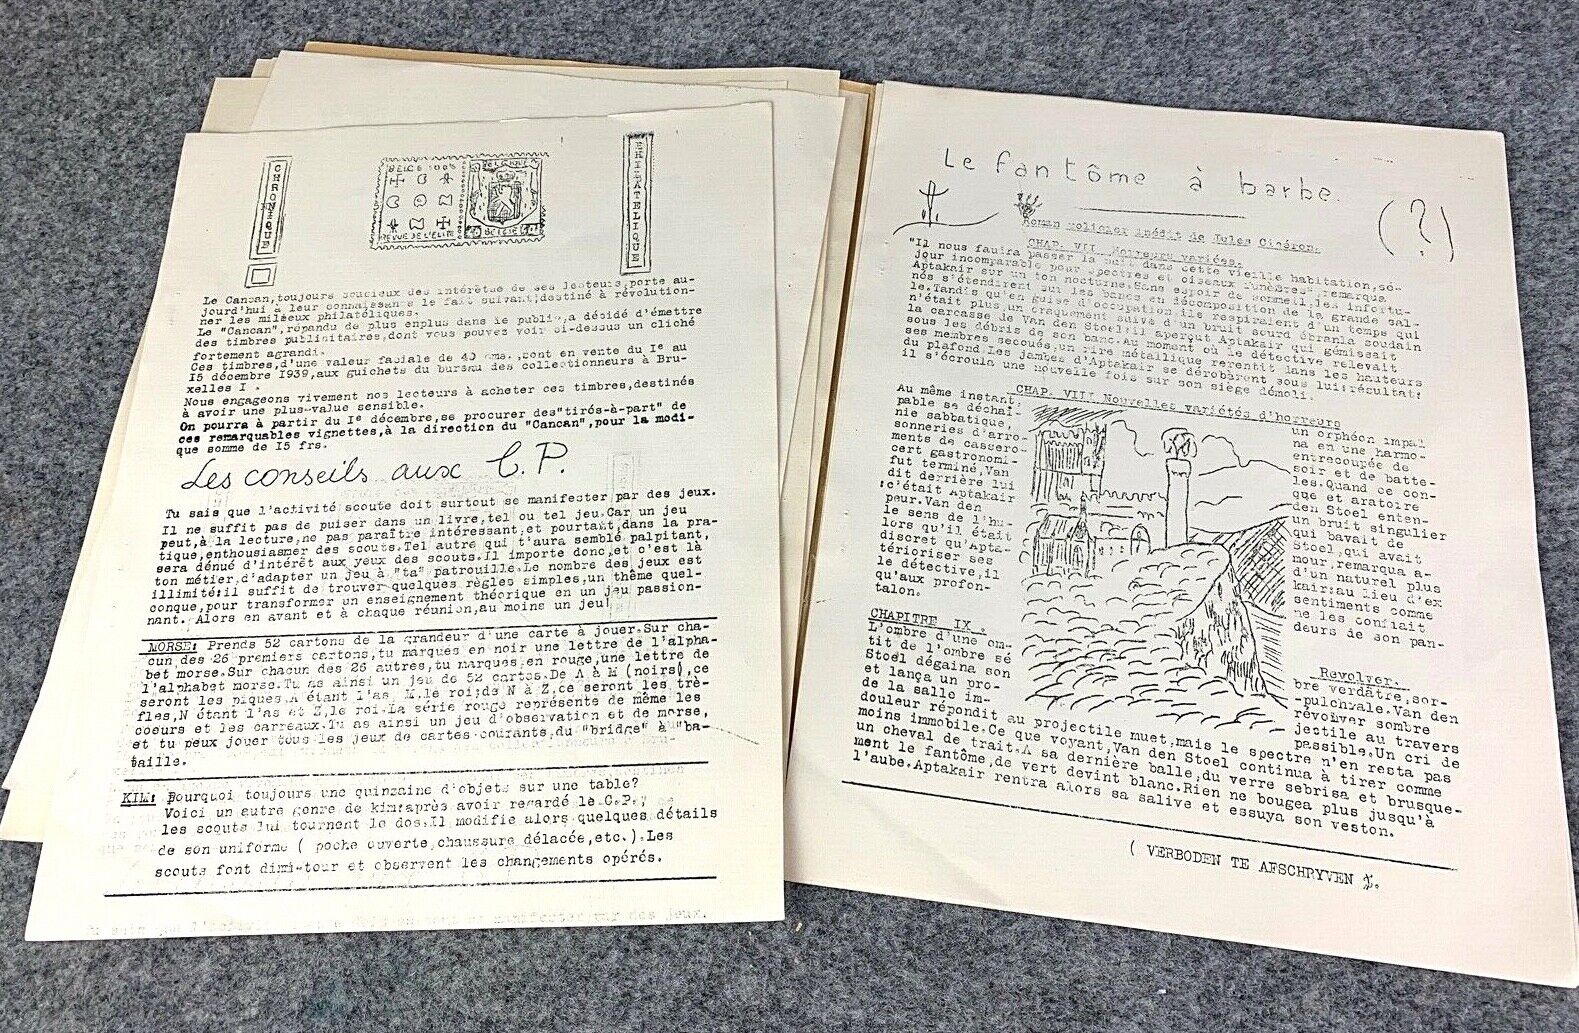 CHRONIQUE
BELCE 100%
REVUE DE L'ELITE
BELGIQUE
BELGIË
PHILATELIQUE
Le Cancan,toujours soucieux des intérêtse de ses lecteurs,porte au-
jourd'hui à leur connaissance le fait suivant,destiné à révolution-
ner les milieux philatéliques.
Le "Cancan",répandu de plus enplus dans le public,a décidé d'émettre
des timbres publicitaires,dont vous pouvez voir ci-dessus un cliché
fortement agrandi.
Ces timbres,d'une valeur faciale de 40 cms.,sont en vente du Ie au
I5 décembre I939,aux guichets du bureau des collectionneurs à Bru-
xelles I.
Nous engageons vivement nos lecteurs à acheter ces timbres,destinés
à avoir une plus-value sensible.
On pourra à partir du Ie décembre,se procurer des"tirés-à-part" de
ces remarquables vignettes,à la direction du "Cancan",pour la modi-
que somme de I5 frs.
Les conseils aux C.P.
Tu sais que l'activité scoute doit surtout se manifester par des jeux.
Il ne suffit pas de puiser dans un livre,tel ou tel jeu.Car un jeu
peut,à la lecture,ne pas paraître intéressant,et pourtant,dans la pra-
tique,enthousiasmer des scouts.Tel autre qui t'aura semblé palpitant,
sera dénué d'intérêt aux yeux des scouts.Il importe donc,et c'est là
ton métier,d'adapter un jeu à "ta" patrouille.Le nombre des jeux est
illimité:il suffit de trouver quelques règles simples,un thème quel-
conque,pour transformer un enseignement théorique en un jeu passion-
nant. Alors en avant et à chaque réunion,au moins un jeu!
MORSE: Prends 52 cartons de la grandeur d'une carte à jouer.Sur cha-
cun des 26 premiers cartons,tu marques en noir une lettre de l'alpha-
bet morse.Sur chacun des 26 autres,tu marques,en rouge,une lettre de
l'alphabet morse.Tu as ainsi un jeu de 52 cartes.De A à M (noirs),ce
seront les piques,A étant l'as, M,le roi;de N à Z,ce seront les trè-
fles,N étant l'as et Z,le roi.La série rouge représente de même les
coeurs et les carreaux.Tu as ainsi un jeu d'observation et de morse,
et tu peux jouer tous les jeux de cartes courants,du "bridge" à "ba-
taille.
KIM: Pourquoi toujours une quinzaine d'objets sur une table?
Voici un autre genre de kim:après avoir regardé le C.P.,
les scouts lui tournent le dos.Il modifie alors quelques détails
de son uniforme ( poche ouverte,chaussure délacée,etc.).Les
scouts font dimi-tour et observent les changements opérés.
Le fantôme à barbe.
(?)
Roman policier inédit de Jules Cicéron.
CHAP. VII Horreurs variées.
"Il nous faudra passer la nuit dans cette vieille habitation,sé-
jour incomparable pour spectres et oiseaux funèbres",remarqua
Aptakair sur un ton nocturne.Sans espoir de sommeil,les infortu-
nés s'étendirent sur les bancs en décomposition de la grande sal-
le.Tandis qu'en guise d'occupation,ils respiraient d'un temps qui
n'était plus un craquement suivi d'un bruit sourd ébranla soudain
la carcasse de Van den Stoel:il aperçut Aptakair qui gémissait
sous les débris de son banc.Au moment où le détective relevait
ses membres secoués,un rire métallique retentit dans les hauteurs
du plafond.Les jambes d'Aptakair se dérobèrent sous lui:résultat:
il s'écroula une nouvelle fois sur son siège démoli.
CHAP. VIII Nouvelles variétés d'horreurs
Au même instant, un orphéon impal
pable se déchaî- na en une harmo-
nie sabbatique, entrecoupée de
sonneries d'arro- soir et de batte-
ments de cassero- les.Quand ce con-
cert gastronomi- que et aratoire
fut terminé,Van den Stoel enten-
dit derrière lui un bruit singulier
:c'était Aptakair qui bavait de
peur.Van den Stoel,qui avait
le sens de l'hu- mour,remarqua a-
lors qu'il était d'un naturel plus
discret qu'Apta- kair:au lieu d'ex
térioriser ses sentiments comme
le détective,il ne les confiait
qu'aux profon- deurs de son pan-
talon.
CHAPITRE IX . Revolver.
L'ombre d'une om- bre verdâtre,sor-
tit de l'ombre sé -pulchrale.Van den
Stoel dégaina son révolver sombre
et lança un pro- jectile au travers
de la salle im- passible.Un cri de
douleur répondit au projectile muet,mais le spectre n'en resta pas
moins immobile.Ce que voyant,Van den Stoel continua à tirer comme
un cheval de trait.A sa dernière balle,du verre sebrisa et brusque-
ment le fantôme,de vert devint blanc.Rien ne bougea plus jusqu'à
l'aube.Aptakair rentra alors sa salive et essuya son veston.
( VERBODEN TE AFSCHRYVEN ).